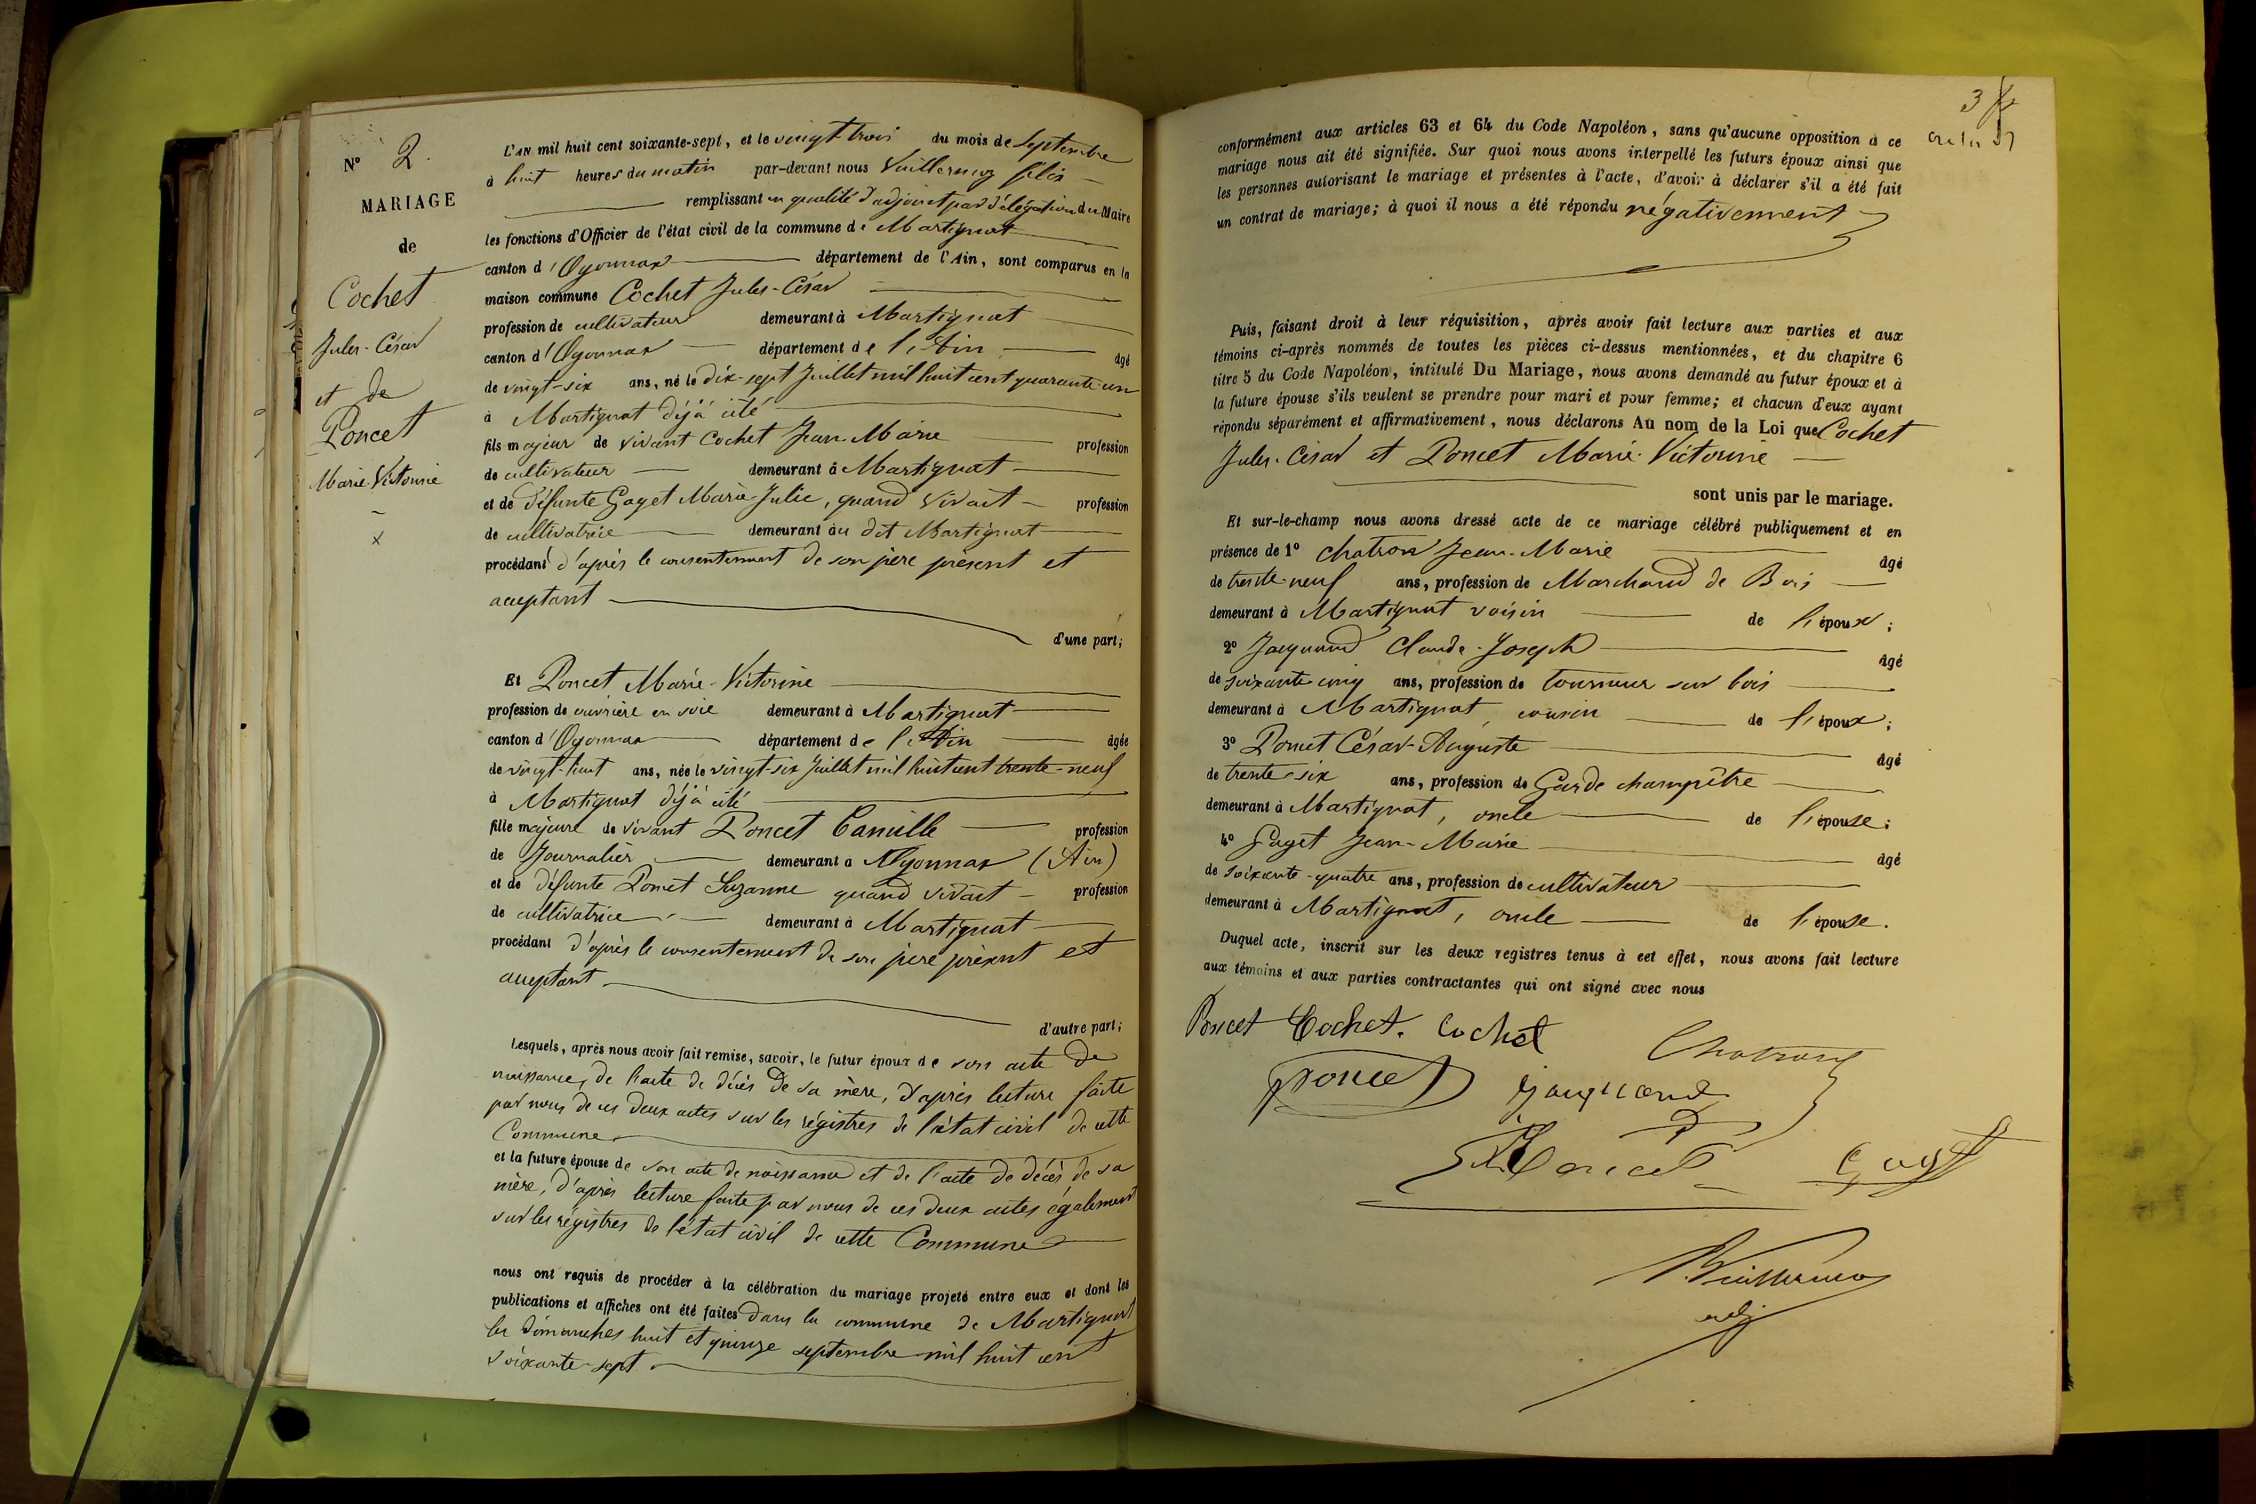 N° 2.
MARIAGE
de
Cochet
Jules-César
et de
Poncet
Marie Victorine
x
L'AN mil huit cent soixante-sept, et le vingt-trois du mois de Septembre
à huit heures du matin par-devant nous Vuillermoz félix
remplissant en qualité d'adjoint par délégation du Maire
les fonctions d'Officier de l'état civil de la commune de Martignat
canton d'Oyonnax département de l'Ain, sont comparus en la
maison commune Cochet Jules-César
profession de cultivateur demeurant à Martignat
canton d'Oyonnax département de l'Ain âgé
de vingt-six ans, né le dix-sept Juillet mil huit cent quarante-un
à Martignat déjà cité
fils majeur de vivant Cochet Jean-Marie profession
de cultivateur demeurant à Martignat
et de défunte Gaget Marie-Julie, quand vivait profession
de cultivatrice demeurant au dit Martignat
procédant d'après le consentement de son père présent et
acceptant
d'une part;
Et Poncet Marie-Victorine
profession de ouvrière en soie demeurant à Martignat
canton d'Oyonnax département de l'Ain âgée
de vingt-huit ans, née le vingt-six Juillet mil huit cent trente-neuf
à Martignat déjà cité
fille majeure de vivant Poncet Camille profession
de Journalier demeurant à Oyonnax (Ain)
et de défunte Poncet Suzanne quand vivait profession
de cultivatrice demeurant à Martignat
procédant d'après le consentement de son père présent et
acceptant
d'autre part;
Lesquels, après nous avoir fait remise, savoir, le futur époux de son acte de
naissance, de l'acte de décès de sa mère, d'après lecture faite
par nous de ces deux actes sur les régistres de l'état civil de cette
Commune
et la future épouse de son acte de naissance et de l'acte de décès de sa
mère, d'après lecture faite par nous de ces deux actes également
sur les régistres de l'état civil de cette Commune
nous ont requis de procéder à la célébration du mariage projeté entre eux et dont les
publications et affiches ont été faites dans la commune de Martignat
les dimanches huit et quinze septembre mil huit cent
soixante-sept.
3
conformément aux articles 63 et 64 du Code Napoléon, sans qu'aucune opposition à ce
mariage nous ait été signifiée. Sur quoi nous avons interpellé les futurs époux ainsi que
les personnes autorisant le mariage et présentes à l'acte, d'avoir à déclarer s'il a été fait
un contrat de mariage; à quoi il nous a été répondu négativement
Puis, faisant droit à leur réquisition, après avoir fait lecture aux parties et aux
témoins ci-après nommés de toutes les pièces ci-dessus mentionnées, et du chapitre 6
titre 5 du Code Napoléon, intitulé Du Mariage, nous avons demandé au futur époux et à
la future épouse s'ils veulent se prendre pour mari et pour femme; et chacun d'eux ayant
répondu séparément et affirmativement, nous déclarons Au nom de la Loi que Cochet
Jules-César et Poncet Marie-Victorine
sont unis par le mariage.
Et sur-le-champ nous avons dressé acte de ce mariage célébré publiquement et en
présence de 1° Chatron Jean-Marie âgé
de trente-neuf ans, profession de Marchand de Bois
demeurant à Martignat voisin de l'époux;
2° Jacquand Claude-Joseph âgé
de soixante-cinq ans, profession de tourneur sur bois
demeurant à Martignat, cousin de l'époux;
3° Poncet César-Auguste âgé
de trente-six ans, profession de Garde champêtre
demeurant à Martignat, oncle de l'épouse;
4° Gaget Jean-Marie âgé
de soixante-quatre ans, profession de cultivateur
demeurant à Martignat, oncle de l'épouse.
Duquel acte, inscrit sur les deux registres tenus à cet effet, nous avons fait lecture
aux témoins et aux parties contractantes qui ont signé avec nous
Poncet Cochet. Cochet Chatron
Poncet Jacquand
Poncet Gaget
Vuillermoz
adj